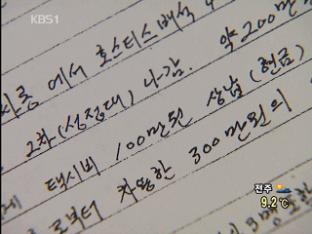 KBS1
사롱에서 호스티스 배석
2차(성접대) 나감. 약 200만원
택시비 100만원 상납 (현금
로부터 차용한 300만원의
전주
9.2℃